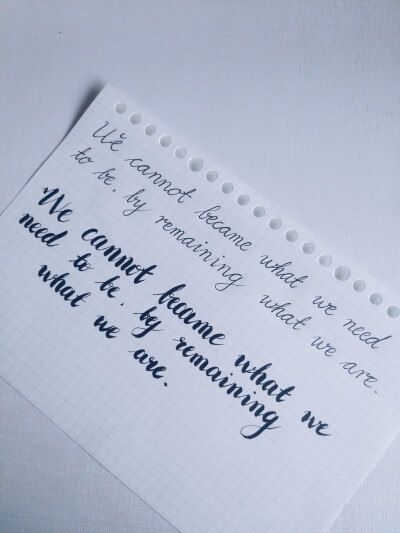 We cannot became what we need
to be, by remaining what we are.
We cannot became what we
need to be, by remaining
what we are.